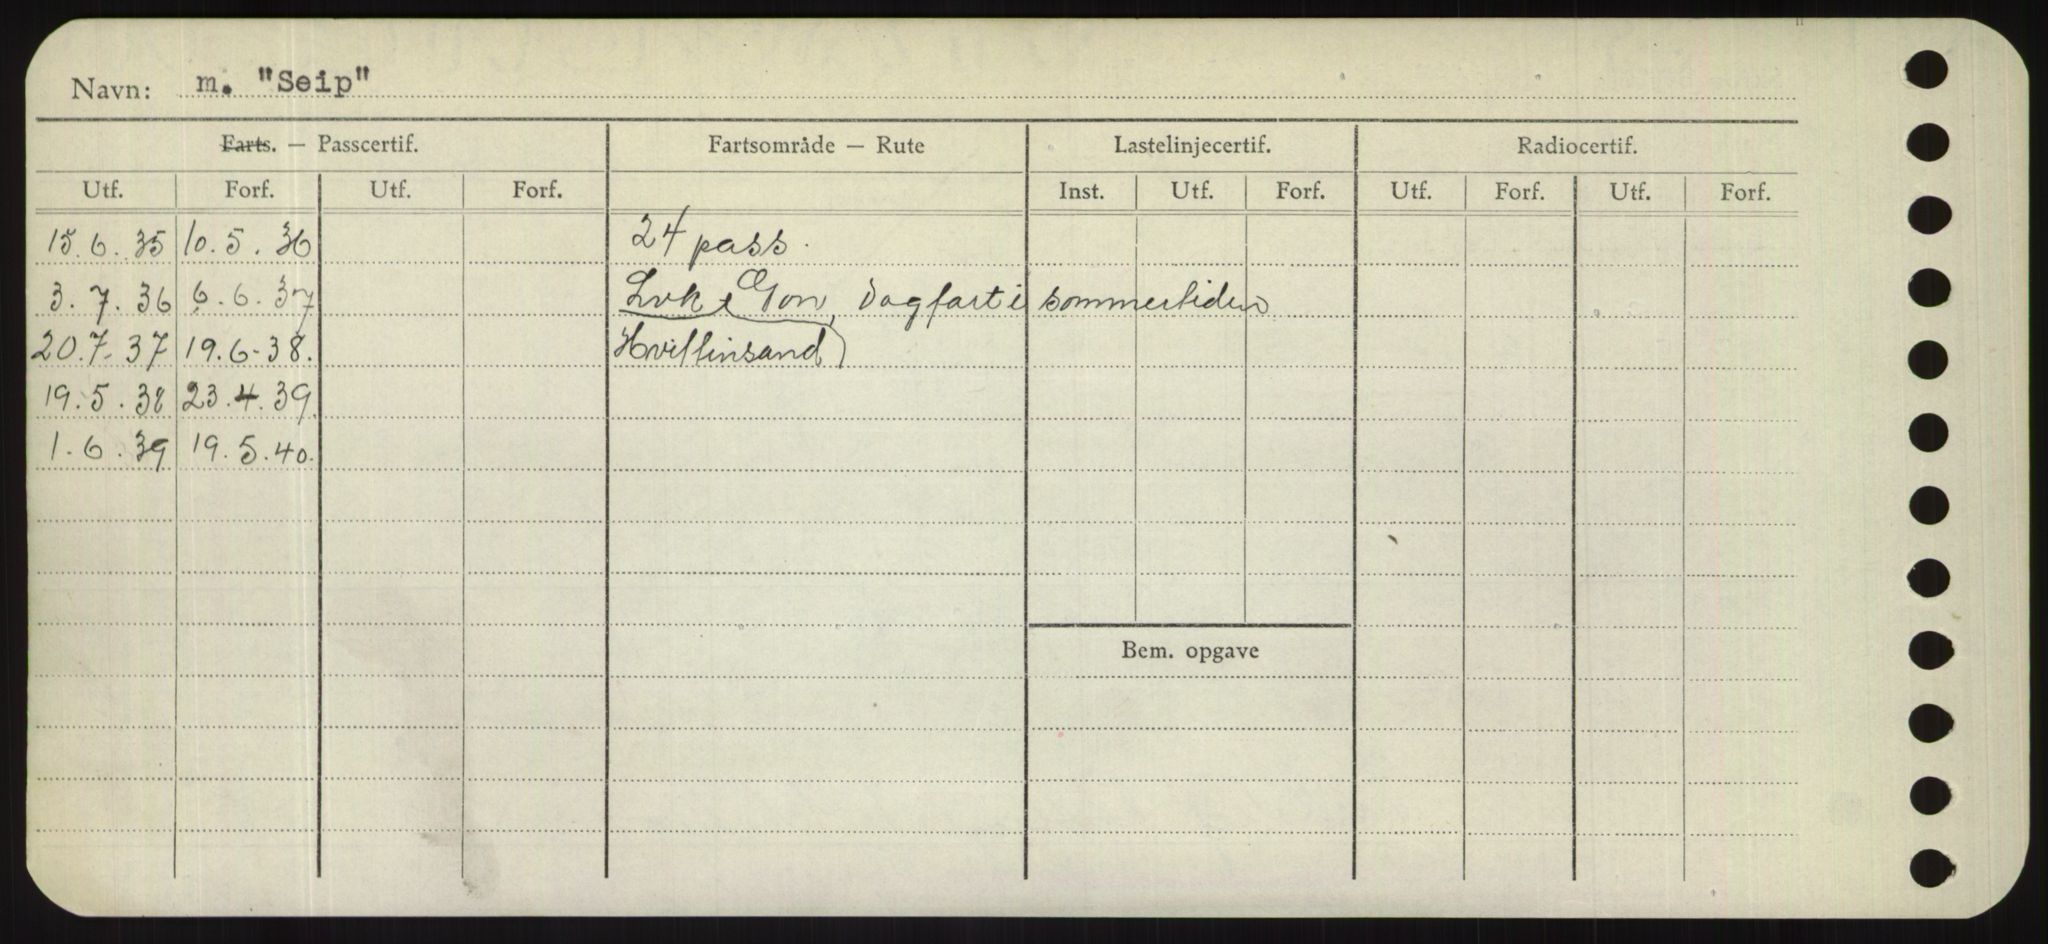 Navn: m. "Seip"
Farts. — Passcertif. Fartsområde — Rute Lastelinjecertif. Radiocertif.
Utf. Forf. Utf. Forf. Inst. Utf. Forf. Utf. Forf. Utf. Forf.
15.6.35 10.5.36 24 pass.
3.7.36 6.6.37 Lvk, Gon, Dagfart i sommertiden
20.7.37 19.6-38. Hvittinsand
19.5.38 23.4.39
1.6.39 19.5.40.
Bem. opgave